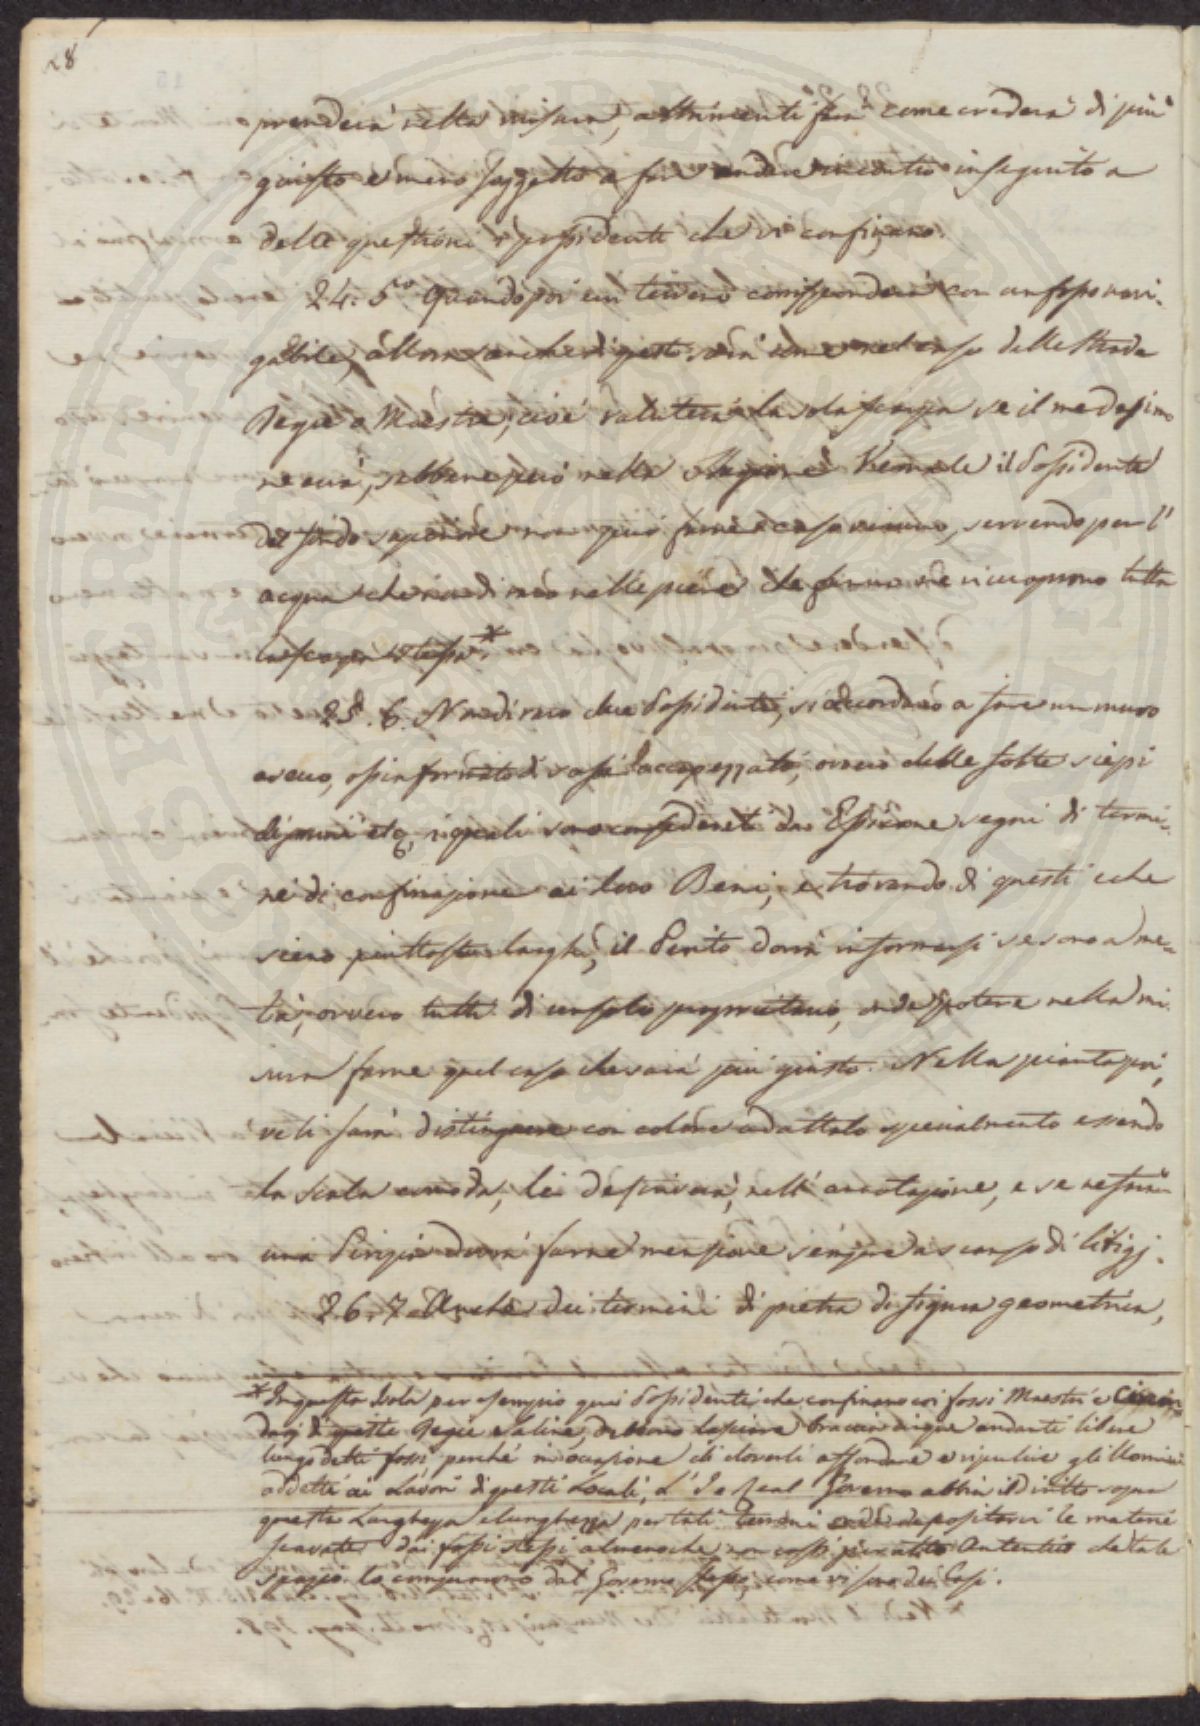 28
prenderà nella misura, altrimenti farà come crederà di più
giusto e meno soggetto a fare andare incontro in seguito a
delle questioni i possidenti che vi confinano.
24. 5º Quando poi un terreno corrisponderà con un fosso navi-
gabile, allora anche di questo sarà come nel caso delle strade
Regie o Maestre, cioè valuterà la sola scarpa se il medesimo
ne avrà, sebbene però nella stagione Iemale il Possidente
del fondo superiore non può farne caso nissuno, servendo per l'
acqua che risiedi nelle piene che fanno e ricuoprono tutta
la scarpa stessa.*
25. 6. Nondimeno due Possidenti, si accordano a fare un muro
a secco, o sia formato di sassi accapezzati, ovvero delle folte siepi
di pruni etc, i quali sono considerati da Essi come segni di termi-
ne di confinazione ai loro Beni, e trovando di questi che
sieno piuttosto larghi, il Perito dovrà informarsi se sono a me-
tà, ovvero tutti di un solo proprietario, onde potere nella mi-
sura farne quel caso che sarà più giusto. Nella pianta poi,
ve li farà distinguere con colore adattato specialmente essendo
la scala comoda, lei descriverà, nell' annotazione, e se ne farà
una Perizia dovrà farne menzione sempre a scanso di litigj.
26. 7. Anche dei termini di pietra di figura geometrica,
* In questa Isola per esempio quei Possidenti che confinano coi fossi Maestri e Circon-
darj di queste Regie Saline, debbono lasciare braccia cinque andanti libere
lungo detti fossi perché in occasione di doverli affondare e ripulire gli Uomini
addetti ai Lavori di questi Locali, L' I. e Real Governo abbia il diritto sopra
questa Larghezza e lunghezza per tali terreni onde depositarvi le materie
scavate dai fossi stessi almenoche non costi per atto Autentico che tale
spazio lo comprarono dal Governo stesso, come vi sono dei Casi.